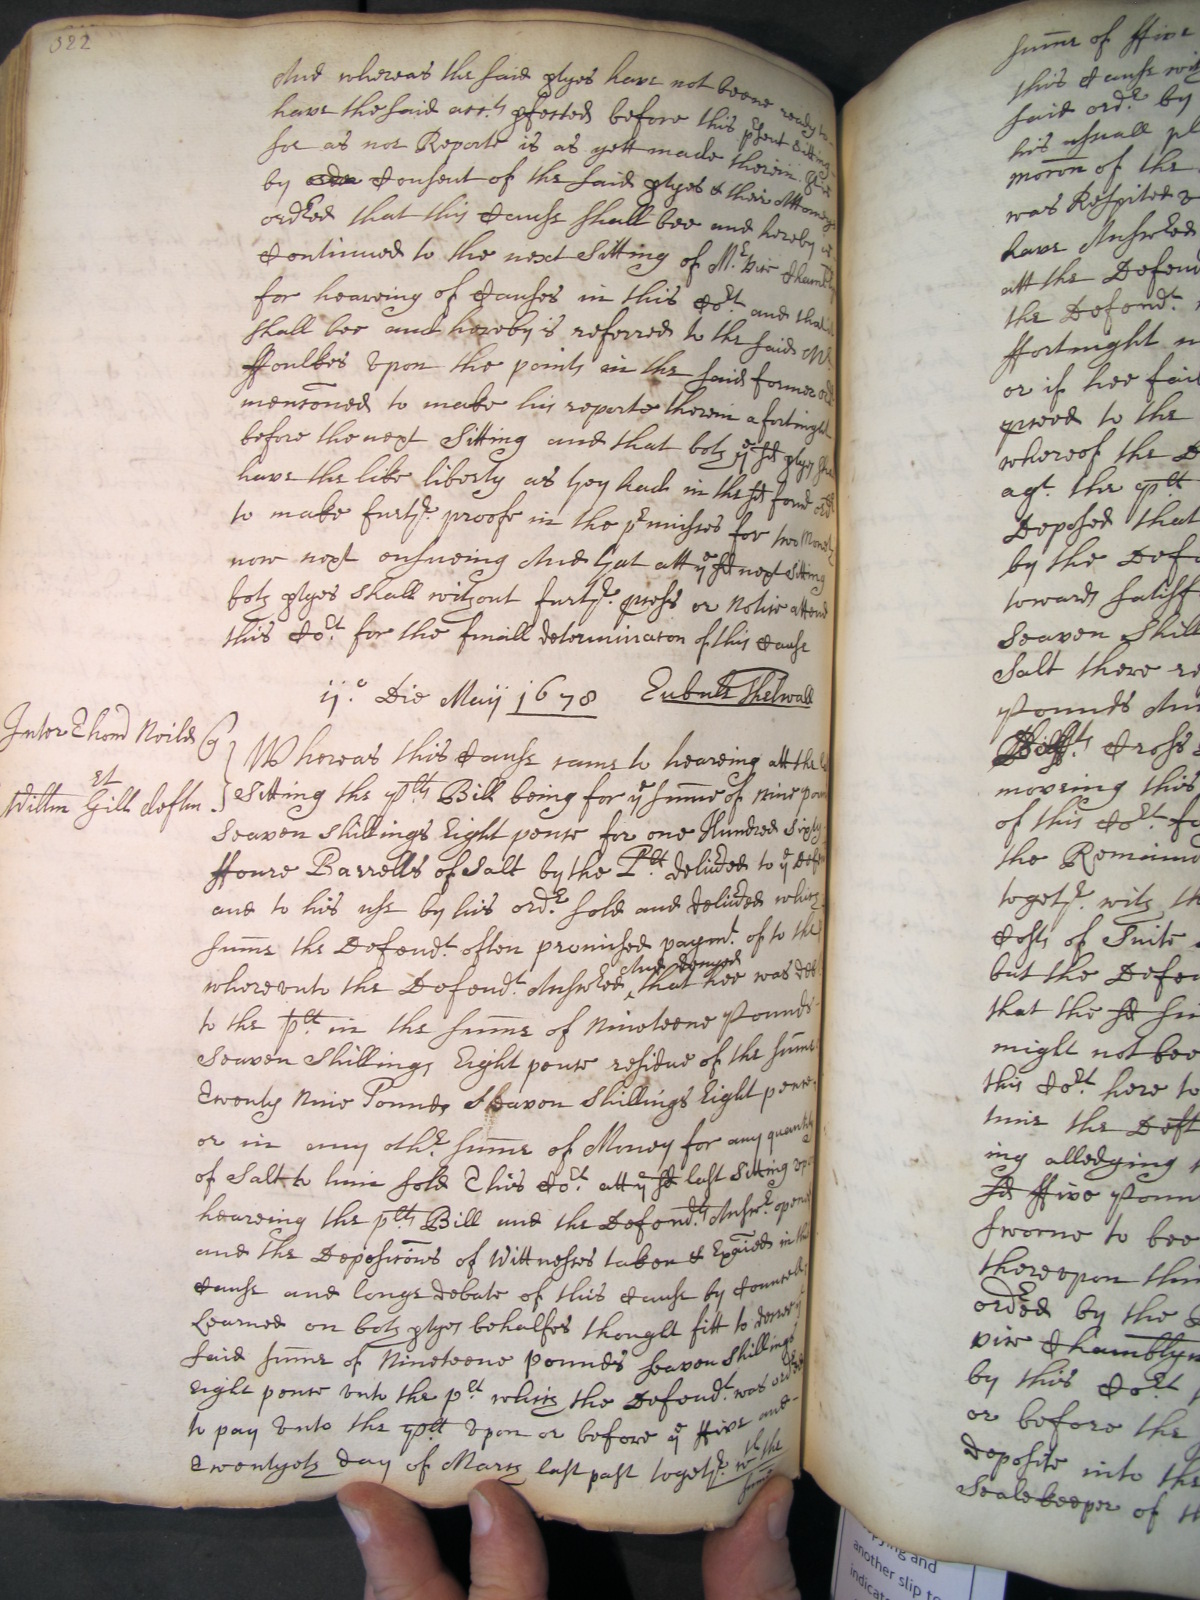 322
And whereas the said ptyes have not beene ready to
have the said acc.ts pfected before this psent Sitting
soe as noe Reporte is as yett made therein It is
by Consent of the said ptyes & their Attorneys
ordred that this Cause shall bee and hereby is
Continued to the next Sitting of Mr. vice Chamblyn
for heareing of Causes in this Cort. and that it
shall bee and hereby is referred to the said Mr.
ffoulkes vpon the points in the said former ordr
menconed to make his reporte therein a fortnight
before the next Sitting and that both ye sd ptyes shall
have the like liberty as they had in the sd form ordr
to make furthr. proofe in the pmisses for two Moneths
now next ensueing And that att ye sd next Sitting
both ptyes shall without furthr. pcess or Notice attend
this Cort. for the finall determinacon of this Cause
Eubule Thelwall
ij.o Die Maij 1678
Inter Thom Neild Qr
et
Willm Gill deften
Whereas this Cause came to heareing att the last
Sitting the plts Bill being for ye sume of Nine pounds
Seaven shillings Eight pence for one Hundred Sixty
ffoure Barrells of Salt by the Plt deliued to ye Defendt
and to his use by his ordr. sold and deliued which
sume the Defendt. often promised paymt. of to the
whereunto the Defendt. Answred And denyed that hee was debted
to the plt in the sume of Nineteene Pounds
Seaven Shillings Eight pence residue of the sume
Twenty Nine Pounds Seaven Shillings Eight pence,
or in any othr. sume of Money for any quantity
of Salt to him sold This Cort. att ye sd last Sitting vpon
heareing the plts Bill and the Defendts. Answr. opened
and the Deposicons of Wittnesses taken & Expaied in the
Cause and longe debate of this Cause by Councell
Learned on both ptyes behalfes thought fitt to decree ye
said sume of Nineteene pounds seaven shillings
eight pence vnto the plt which the Defendt. was ordred
to pay vnto the plt vpon or before ye ffive and
Twentyeth day of March last past togethr. wth the
sume
sume of ffive
this Cause
said ordr. by
his usuall pl
mocon of the
was Respited
have Answred
att the Defen
the Defendt.
ffortnight
or if hee fai
pceed to the
whereof the D
agt. the plt
Deposed that
by the Def
towards satisf
Seaven Shill
Salt there re
Pounds And
Cross
moveing this
of this Cort. fo
the Remaind
togethr. with th
Costs of Suite
but the Defen
that the sd su
might not bee
this Cort. here to
time the Deft
ing alledging
sd ffive Poun
sworne to bee
therevpon this
ordred by the
vice Chamblyn
by this Cort.
or before the
deposite into the
Sealekeeper of th
pying and
another slip to
indicate